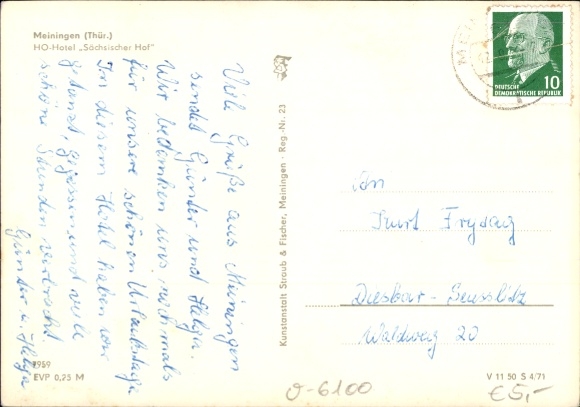 Meiningen (Thür.)
HO-Hotel „Sächsischer Hof"
Viele Grüße aus Meiningen
sendet Günter und Helga.
Wir bedanken uns nochmals
für unsere schönen Urlaubstage
In diesem Hotel haben wir
getanzt, gegessen und viele
schöne Stunden verbracht
Günter u. Helga
1959
EVP 0,25 M
Kunstanstalt Straub & Fischer, Meiningen · Reg.-Nr. 23
10
DEUTSCHE
DEMOKRATISCHE REPUBLIK
An
Kurt Frydag
Diesbar-Seusslitz
Waldweg 20
V 11 50 S 4/71
O-6100
€5,-